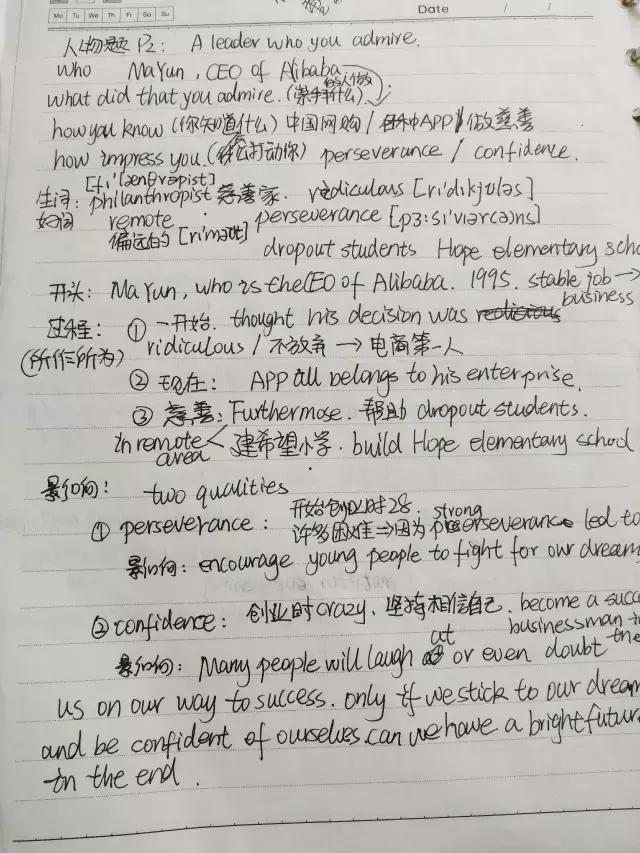 Mo Tu We Th Fr Sa Su
Date / /
人物题 P2: A leader who you admire.
who Ma Yun, CEO of Alibaba
what did that you admire. (崇拜的人做什么)
how you know (你知道什么) 中国网购 / 各种APP / 做慈善
how impress you. (什么打动你) perseverance / confidence.
生词: philanthropist 慈善家. rediculous [ri'dikjʊləs]
好词 remote perseverance
偏远的 dropout students Hope elementary
开头: Ma Yun, who is the CEO of Alibaba. 1995. stable job →
business
过程: ① 一开始. thought his decision was
(所作所为) ridiculous / 不放弃 → 电商第一人
② 现在: APP all belongs to his enterprise.
③ 慈善: Furthermose. 帮助 dropout students.
in remote area < 建希望小学. build Hope elementary school
影响: two qualities
开始创业时28. strong
① perseverance: 许多困难 ⇒ 因为 perseverance led to
影响: encourage young people to fight for our dream
② confidence: 创业时 crazy. 坚持相信自己. become a
businessman
影响: Many people will laugh at or even doubt
us on our way to success. only if we stick to our dream
and be confident of ourselves. can we have a bright future
in the end.